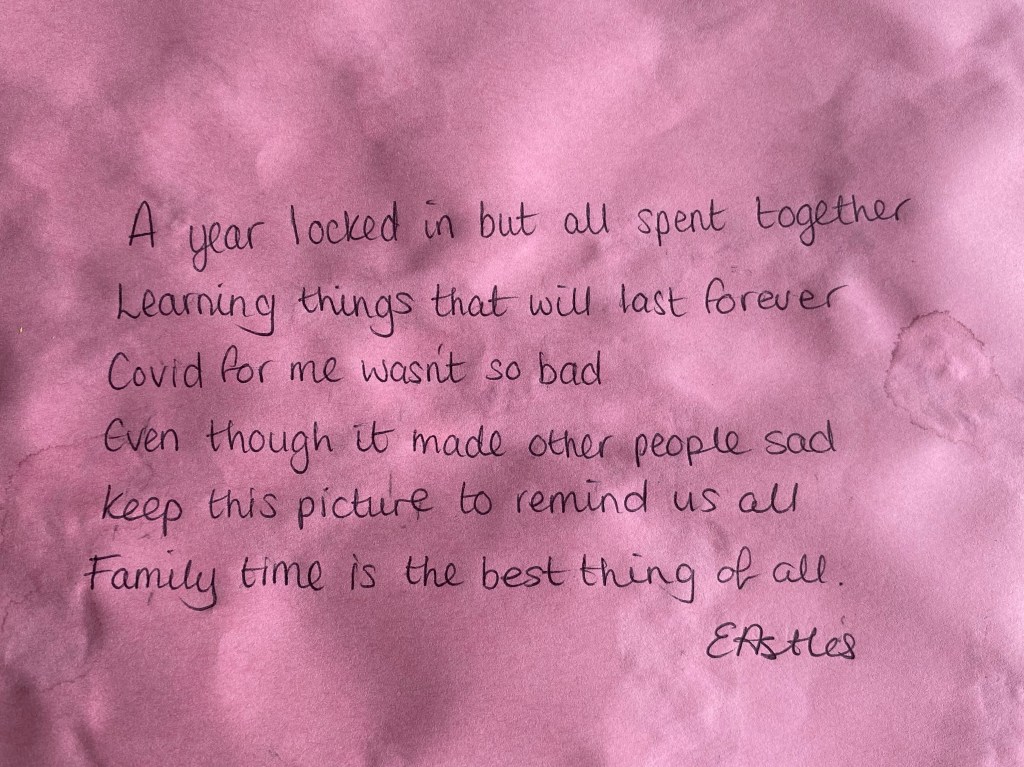 A year locked in but all spent together
Learning things that will last forever
Covid for me wasn't so bad
Even though it made other people sad
keep this picture to remind us all
Family time is the best thing of all.
EAstles